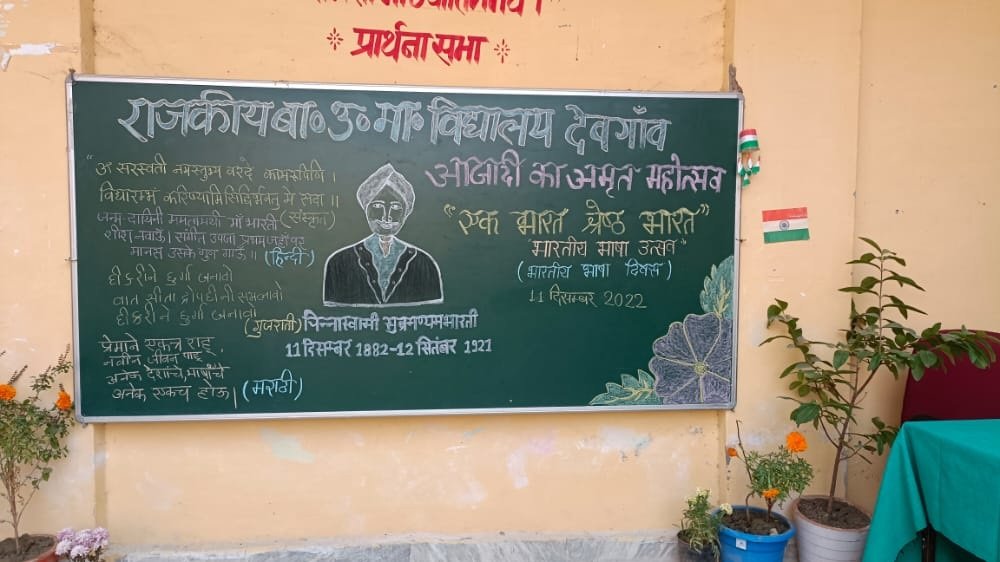 ✻ प्रार्थना सभा ✻
राजकीय बा॰ उ॰ मा॰ विद्यालय देवगाँव
"ॐ सरस्वती नमस्तुभ्यं वरदे कामरूपिणि ।
विद्यारम्भं करिष्यामि सिद्धिर्भवतु मे सदा ॥
(संस्कृत)
जन्म दायिनी ममतामयी माँ भारती
शीश नवाऊँ। संगीत उपजा प्रथम जहाँ पर
मानस उसके गुण गाऊँ ॥ (हिन्दी)
दीकरीने दुर्गा बनावो
वात सीता द्रोपदीनी समजावो
दीकरीने दुर्गा बनावो
(गुजराती)
प्रेमाने एकत्र राहू,
नवीन जीवन पाहू
अनेक देशाचे, भाषांचे
अनेक एकच होऊ। (मराठी)
चिन्नास्वामी सुब्रमण्यम भारती
11 दिसम्बर 1882-12 सितंबर 1921
आजादी का अमृत महोत्सव
"एक भारत श्रेष्ठ भारत"
"भारतीय भाषा उत्सव"
(भारतीय भाषा दिवस)
11 दिसम्बर 2022